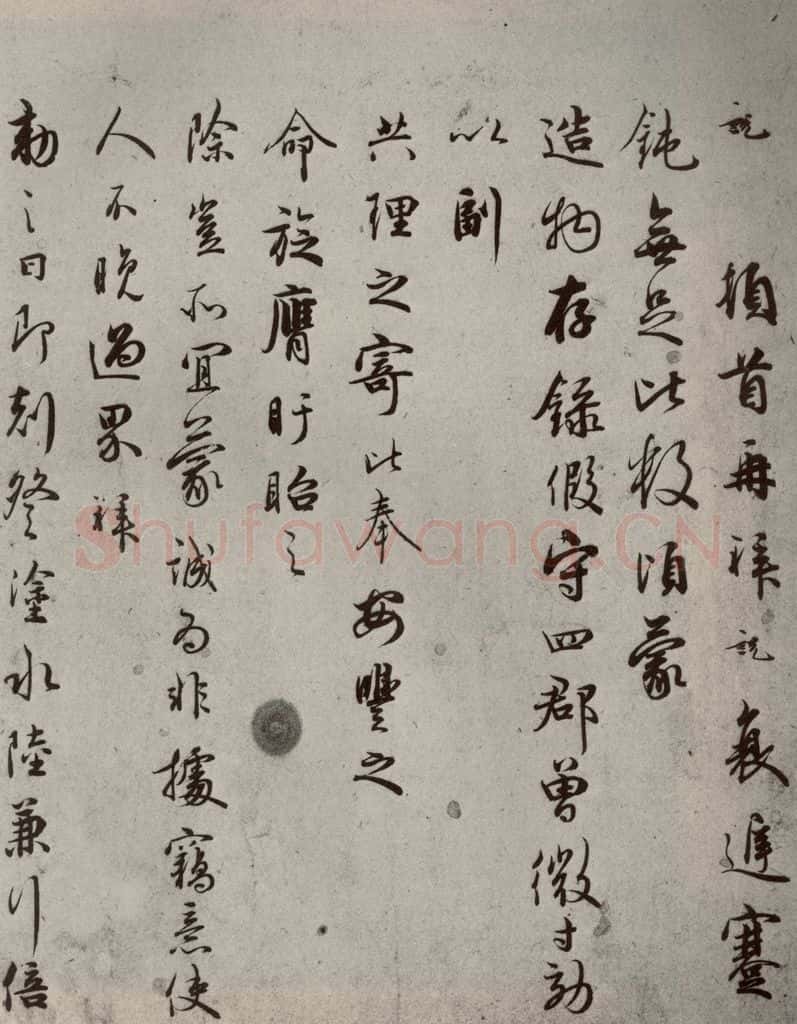 説 頓首再拜説衰遲蹇
鈍無足比數頃蒙
造物存錄假守四郡曾微寸効
以副
共理之寄比奉安豐之
命旋膺盱眙之
除豈所宜蒙誠為非據竊意使
人不晚過界拜
勅之日即刻登塗水陸兼行倍
Shufawang.CN